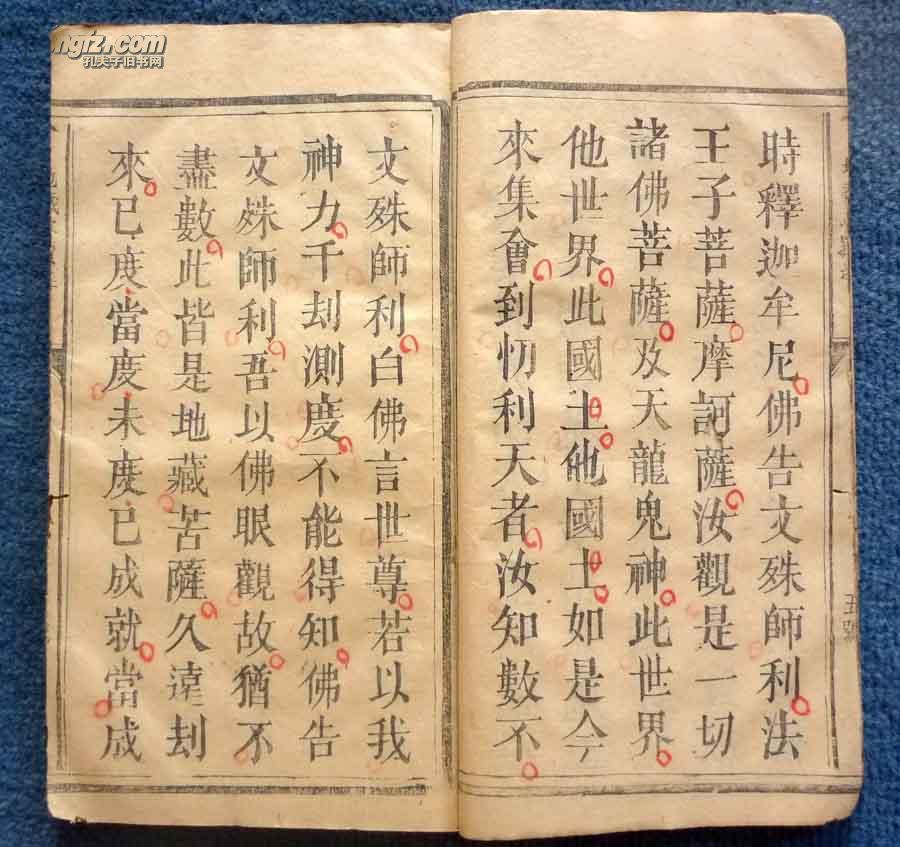 ngfz.com
孔夫子旧书网
時釋迦牟尼佛告文殊師利法
王子菩薩摩訶薩汝觀是一切
諸佛菩薩及天龍鬼神此世界
他世界此國土他國土如是今
來集會到忉利天者汝知數不
文殊師利白佛言世尊若以我
神力千刦測度不能得知佛告
文殊師利吾以佛眼觀故猶不
盡數此皆是地藏苦薩久遠刦
來已度當度未度已成就當成